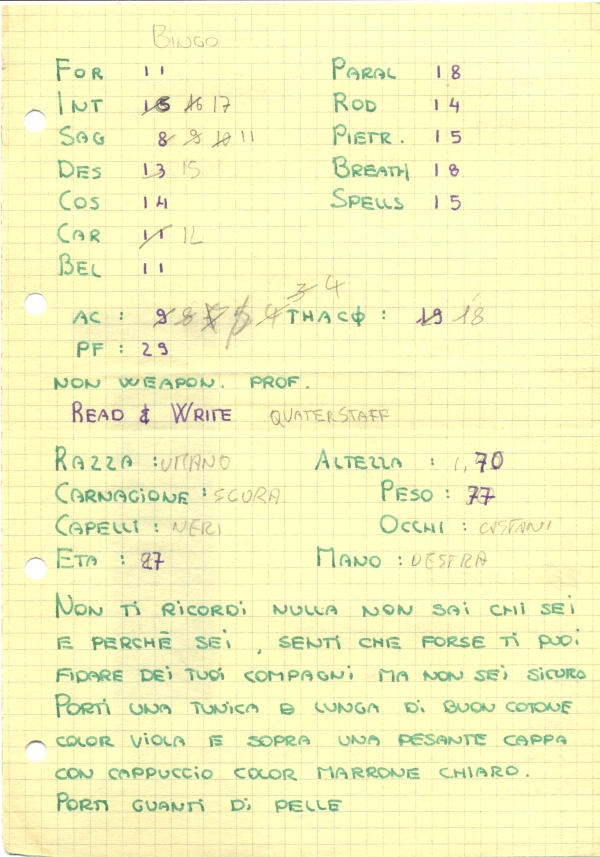 BINGO
FOR 11 PARAL 18
INT 15 16 17 ROD 14
SAG 8 9 10 11 PIETR. 15
DES 13 15 BREATH 18
COS 14 SPELLS 15
CAR 11 12
BEL 11
3 4
AC : 9 8 4 THACØ : 19 18
PF : 29
NON WEAPON. PROF.
READ & WRITE QUATERSTAFF
RAZZA : UMANO ALTEZZA : 1,70
CARNAGIONE : SCURA PESO : 77
CAPELLI : NERI OCCHI : CASTANI
ETA : 27 MANO : DESTRA
NON TI RICORDI NULLA NON SAI CHI SEI
E PERCHÈ SEI , SENTI CHE FORSE TI PUOI
FIDARE DEI TUOI COMPAGNI MA NON SEI SICURO
PORTI UNA TUNICA LUNGA DI BUON COTONE
COLOR VIOLA E SOPRA UNA PESANTE CAPPA
CON CAPPUCCIO COLOR MARRONE CHIARO.
PORTI GUANTI DI PELLE